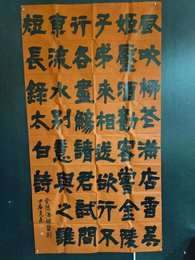 風吹柳花滿店香吳
姬壓酒勸客嘗金陵
子弟來相送欲行不
行各盡觴請君試問
東流水別意與之誰
短長錄太白詩
金陵酒肆留別